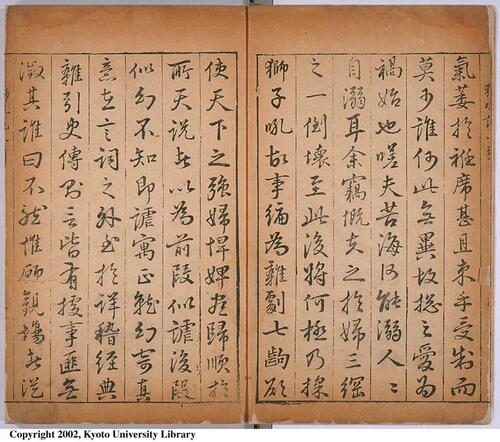 氣萎於袵席甚且束手受制而
莫可誰何此無異故揔之愛為
禍始也嗟夫苦海何能溺人〻
自溺耳余竊慨夫之於婦三綱
之一倒壞至此後將何極乃採
獅子吼故事編為雜劇七齣願
使天下之強婦悍婢盡歸順於
所天說者以為前段似謔後段
似幻不知即謔寓正就幻寄真
意在言詞之外至於詳稽經典
雜引史傳則言皆有據事匪無
徵其誰曰不然惟願觀場者從
Copyright 2002, Kyoto University Library